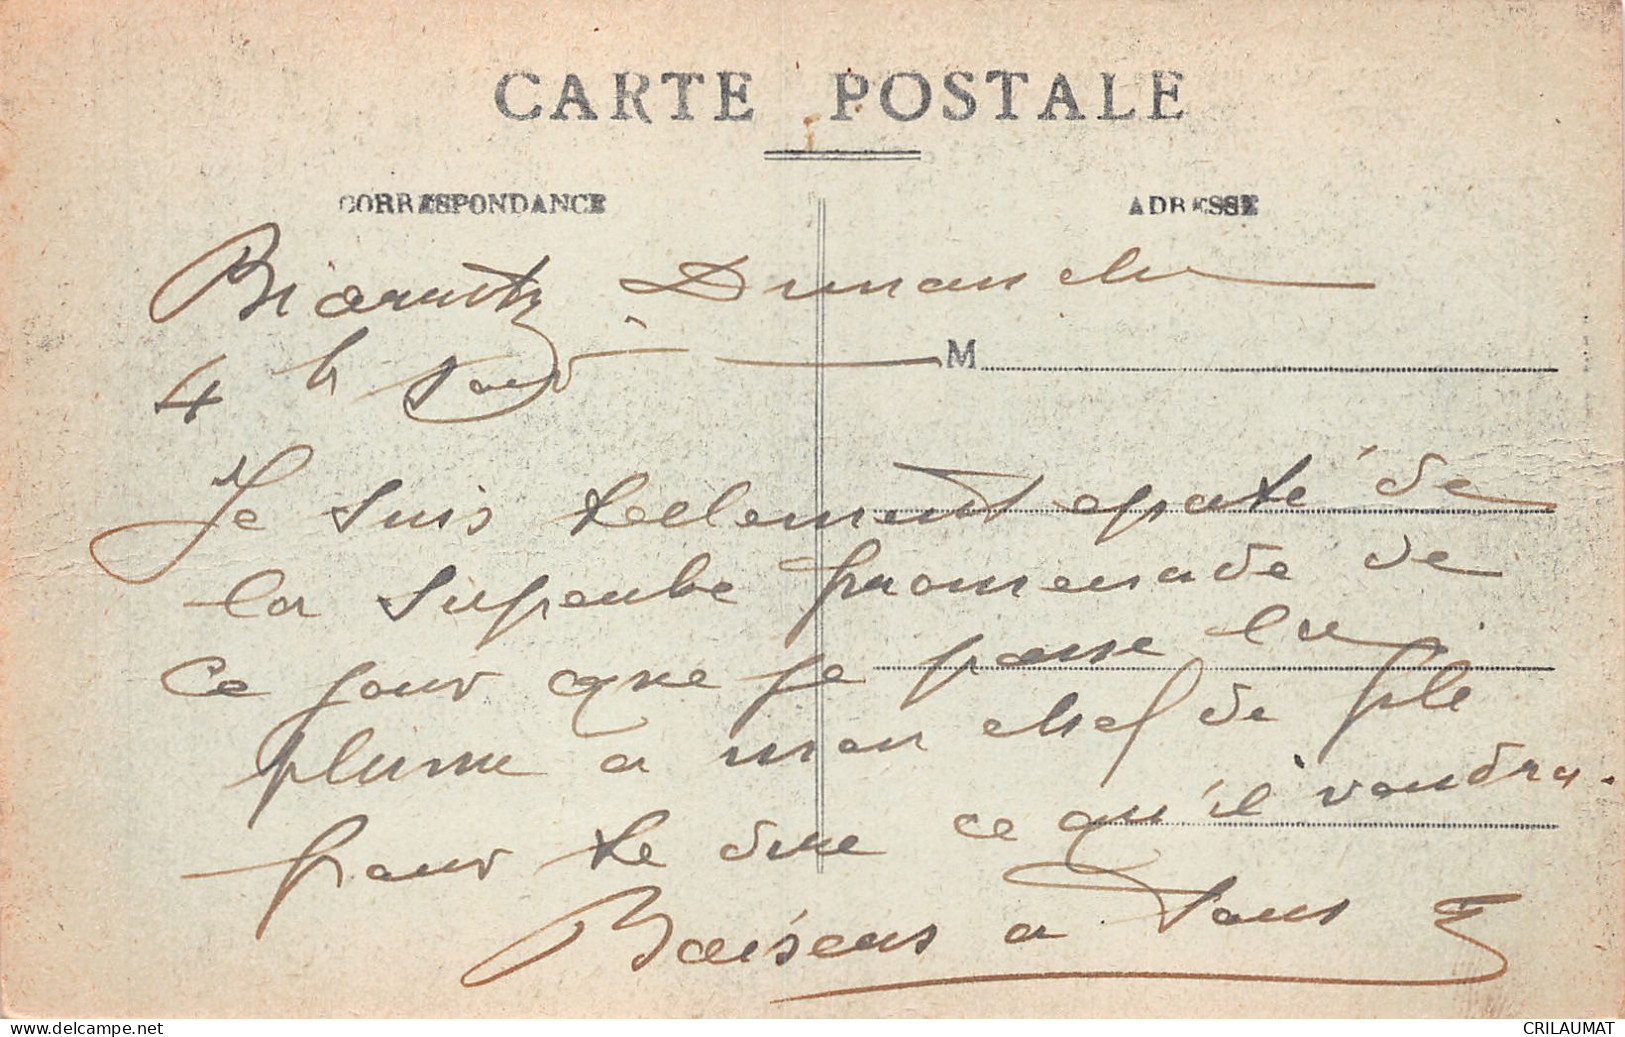 CARTE POSTALE
CORRESPONDANCE
ADRESSE
Biarritz Dimanche
4 h soir
M
Je suis tellement epaté de
la superbe promenade de
ce jour que je passe la
plume a mon chef de file
pour te dire ce qu'il voudra.
Baisers a tous
www.delcampe.net
CRILAUMAT